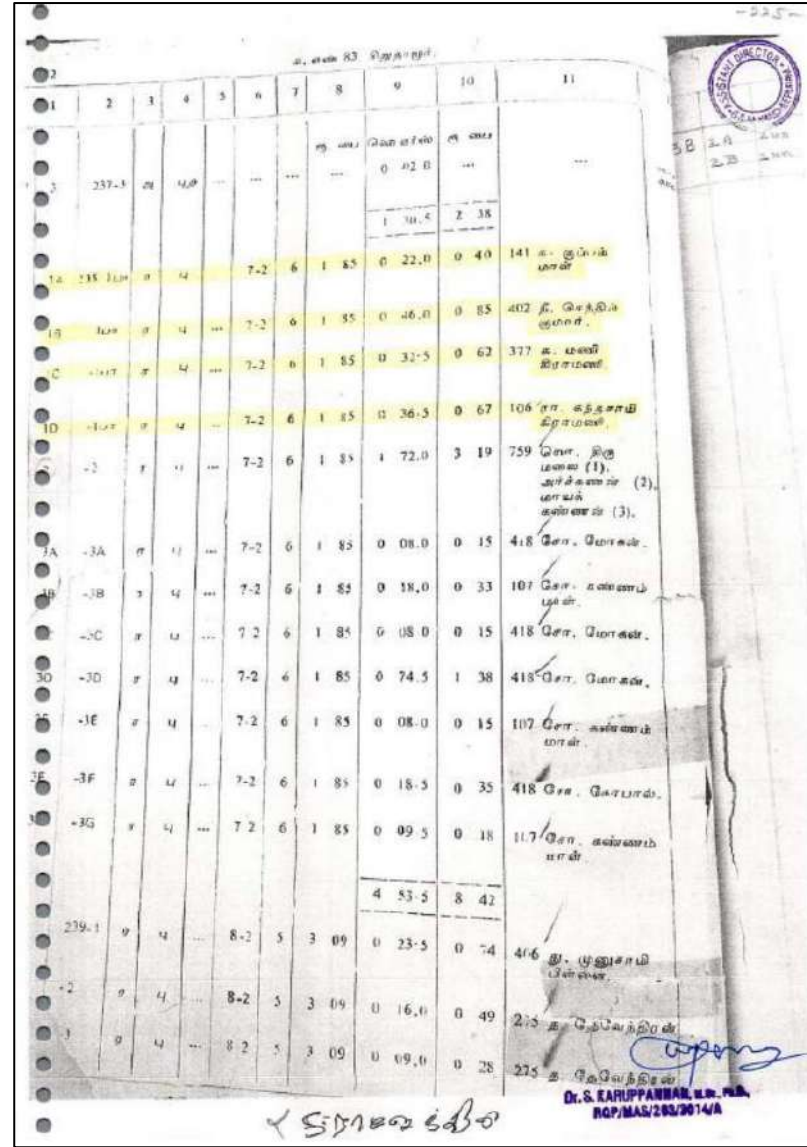 -225-
எண் 83 சிறுதாமூர்.
2 3 4 5 6 7 8 9 10 11
ரூ பை ஹெ ஏர்ஸ் ரூ பை
3 237-3 ... ... ... 0 02.0 ... ...
1 30.5 2 38
1A 238 ர பு 7-2 6 1 85 0 22.0 0 40 141 க. குப்பம்
மாள்
1B ர பு ... 7-2 6 1 85 0 46.0 0 85 402 நீ. செந்தில்
குமார்.
ர பு ... 7-2 6 1 85 0 32.5 0 62 377 க. மணி
கிராமணி.
1D ர பு ... 7-2 6 1 85 0 36.5 0 67 106 ரா. கந்தசாமி
கிராமணி.
ர பு ... 7-2 6 1 85 1 72.0 3 19 759 திரு
மலை (1),
(2),
மாயக்
கண்ணன் (3),
3A -3A ர பு ... 7-2 6 1 85 0 08.0 0 15 418 சோ. மோகன்.
3B -3B ர பு ... 7-2 6 1 85 0 18.0 0 33 107 சோ. கண்ணம்
மாள்.
-3C ர பு ... 7 2 6 1 85 0 08 0 0 15 418 சோ. மோகன்.
3D -3D ர பு ... 7-2 6 1 85 0 74.5 1 38 418 சோ. மோகன்.
-3E ர பு ... 7-2 6 1 85 0 08.0 0 15 107 சோ. கண்ணம்
மாள்.
-3F ர பு ... 7-2 6 1 85 0 18.5 0 35 418 சோ. கோபால்.
-3G ர பு ... 7 2 6 1 85 0 09 5 0 18 107 சோ. கண்ணம்
மாள்
4 53.5 8 42
239-1 ர பு ... 8-2 5 3 09 0 23.5 0 74 து. முனுசாமி
பிள்ளை.
-2 ர பு ... 8-2 5 3 09 0 16.0 0 49 275 த. தேவேந்திரன்
ர பு ... 8 2 5 3 09 0 09.0 0 28 275 த. தேவேந்திரன்
3B 2A
2B
ASSISTANT DIRECTOR
Dr. S. KARUPPANNAN, M.Sc., Ph.D.,
RQP/MAS/263/2014/A